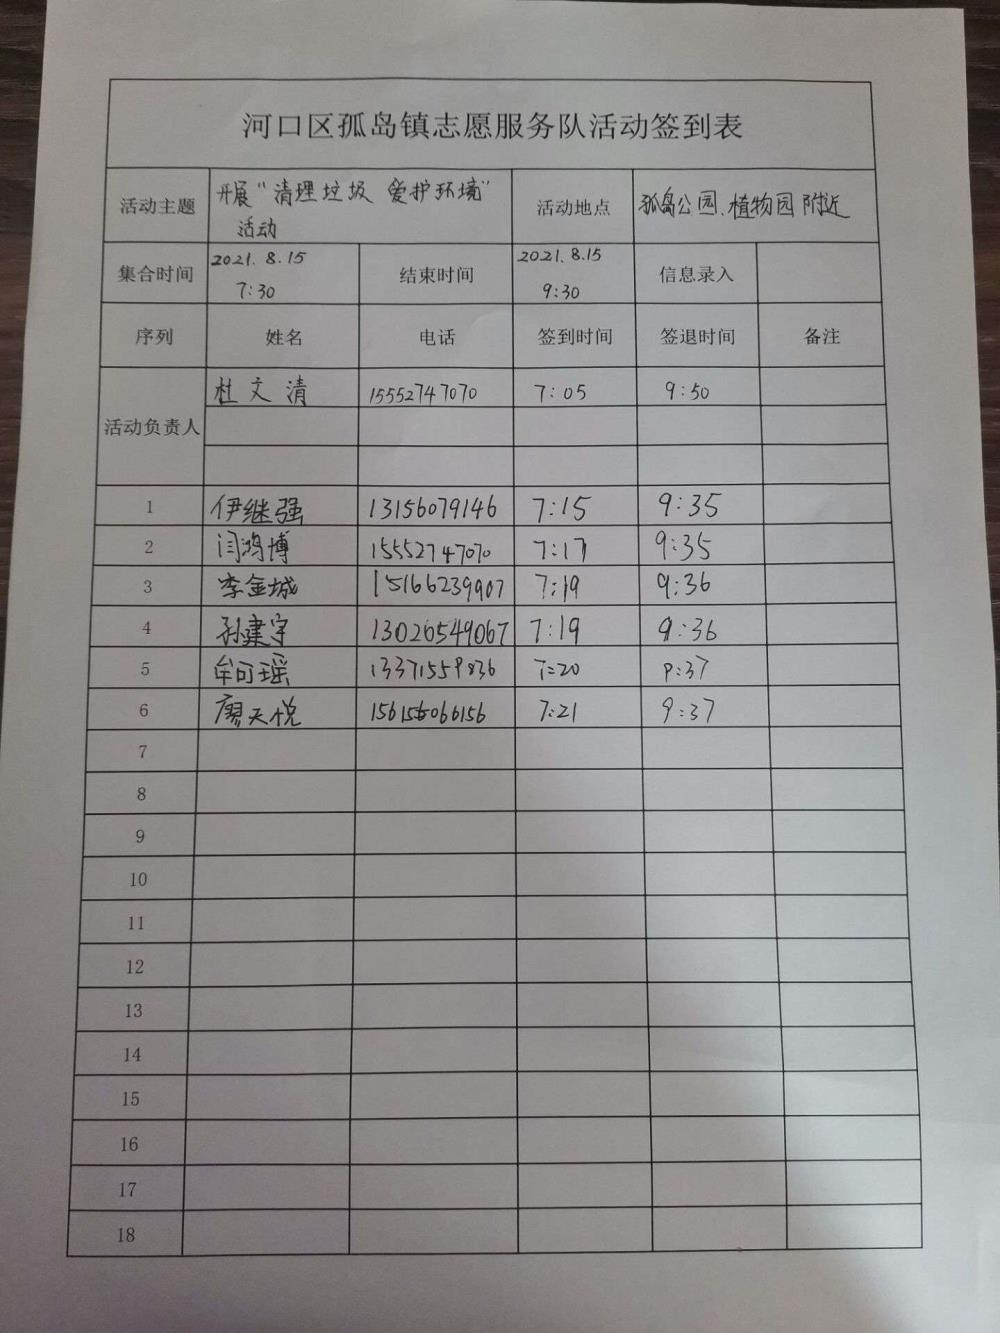 河口区孤岛镇志愿服务队活动签到表
活动主题 开展“清理垃圾 爱护环境” 活动地点 孤岛公园、植物园附近
活动
集合时间 2021.8.15 结束时间 2021.8.15 信息录入
7:30 9:30
序列 姓名 电话 签到时间 签退时间 备注
活动负责人 杜文清 15552747070 7:05 9:50
1 伊继强 13156079146 7:15 9:35
2 闫鸿博 15552747070 7:17 9:35
3 李金城 15166239907 7:19 9:36
4 孙建宇 13026549067 7:19 9:36
5 牟可瑶 13371559836 7:20 9:37
6 廖天悦 7:21 9:37
7
8
9
10
11
12
13
14
15
16
17
18